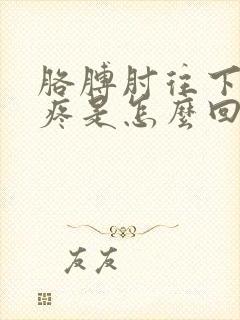 胳膊肘往下
疼是怎麼回
友友